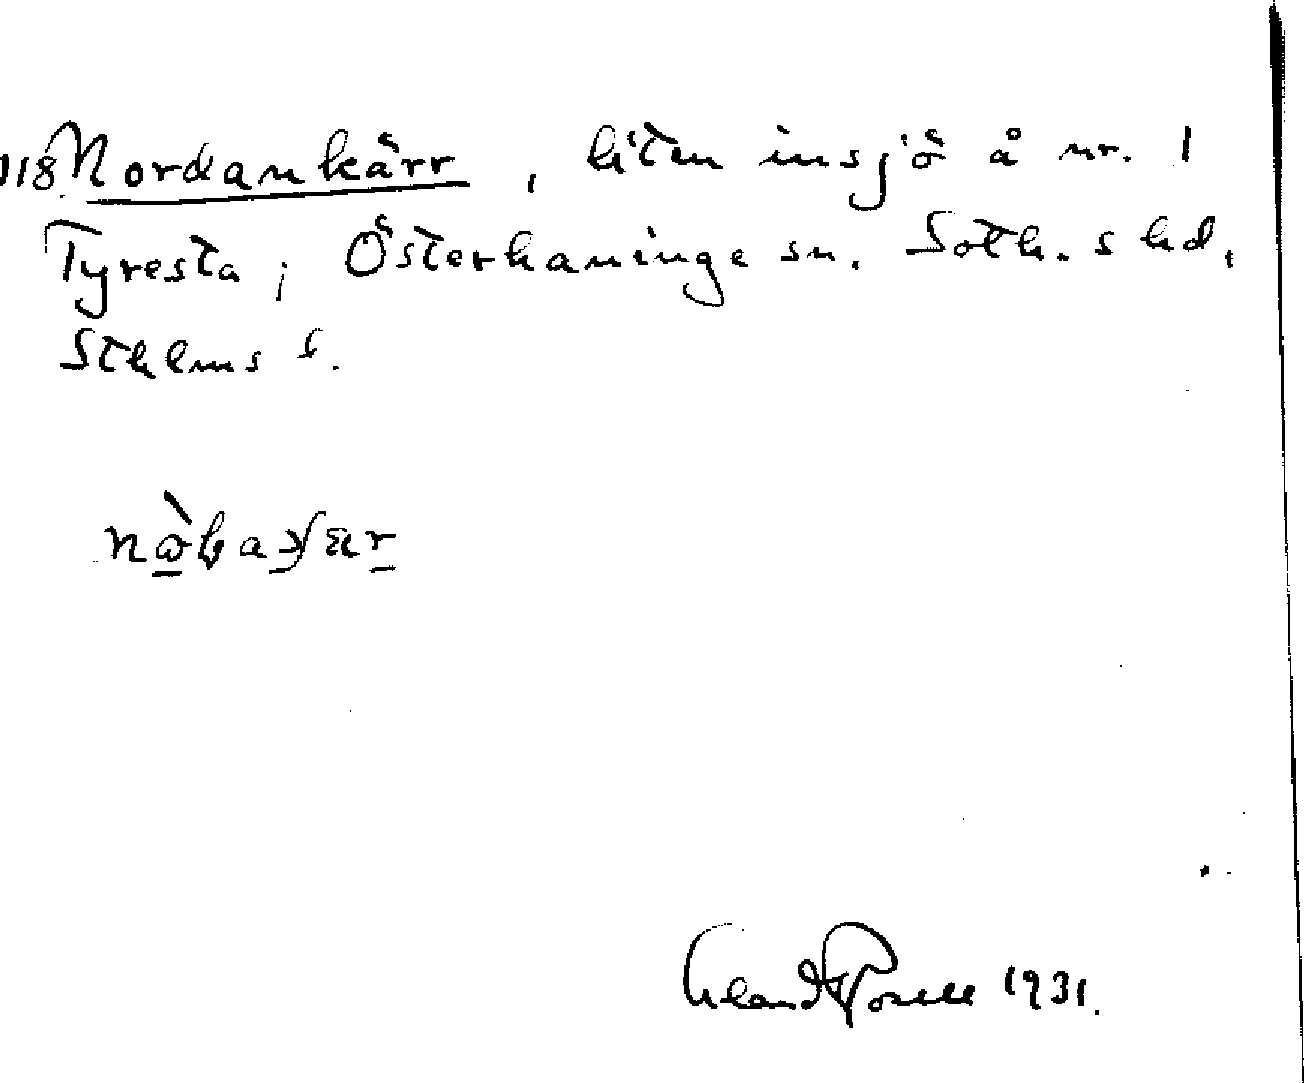 118 Nordankärr, liten insjö å nr. 1
Tyresta; Österhaninge sn. Soth.s hd,
Sthlms l.
1931.